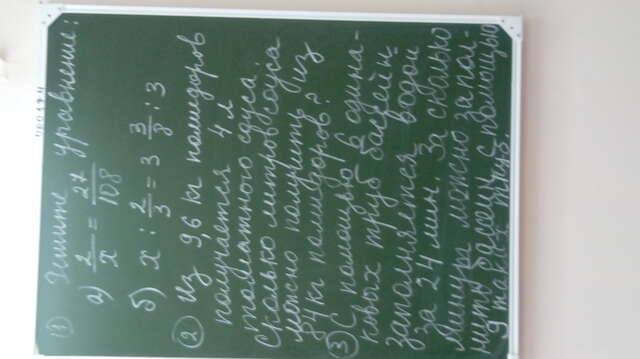 ① Решите уравнение:
а) 2/x = 27/108
б) x : 2/3 = 3 3/8 : 3
② Из 9,6 кг помидоров
получается 4 л
томатного соуса.
Сколько литров соуса
можно получить из
84 кг помидоров?
③ С помощью 6 одина-
ковых труб бассейн
заполняется водой
за 24 мин. За сколько
минут можно запол-
нить бассейн с помощью
9 таких труб.